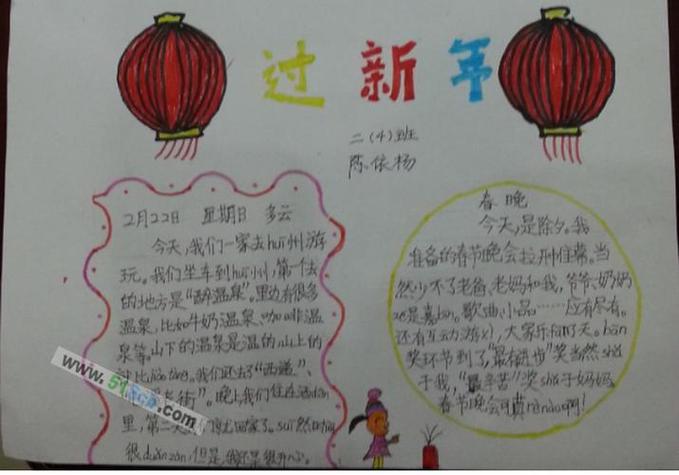 过新年
二(4)班
陈依杨
2月22日 星期日 多云
今天,我们一家去huī州游
玩。我们坐车到huī州,第一个去
的地方是“醉温泉”。里边有很多
温泉,比如牛奶温泉、咖啡温
泉等。山下的温泉是温的,山上的
我们还去了“西递”、
街”。晚上,我们住在酒diàn
里,第二天我们就回家了。suī然时间
很duǎn zàn,但是,我还是很开心。
春晚
今天,是除夕。我
准备的春节晚会拉开帷幕。当
然少不了老爸、老妈和我,爷爷、奶奶
是嘉bīn。歌曲、小品……应有尽有。
还有互动游xì,大家乐
奖环节到了,“最有进步”奖当然shǔ
于我,“最辛苦”奖shǔ于妈妈。
春节晚会可真rè nào啊!
www.